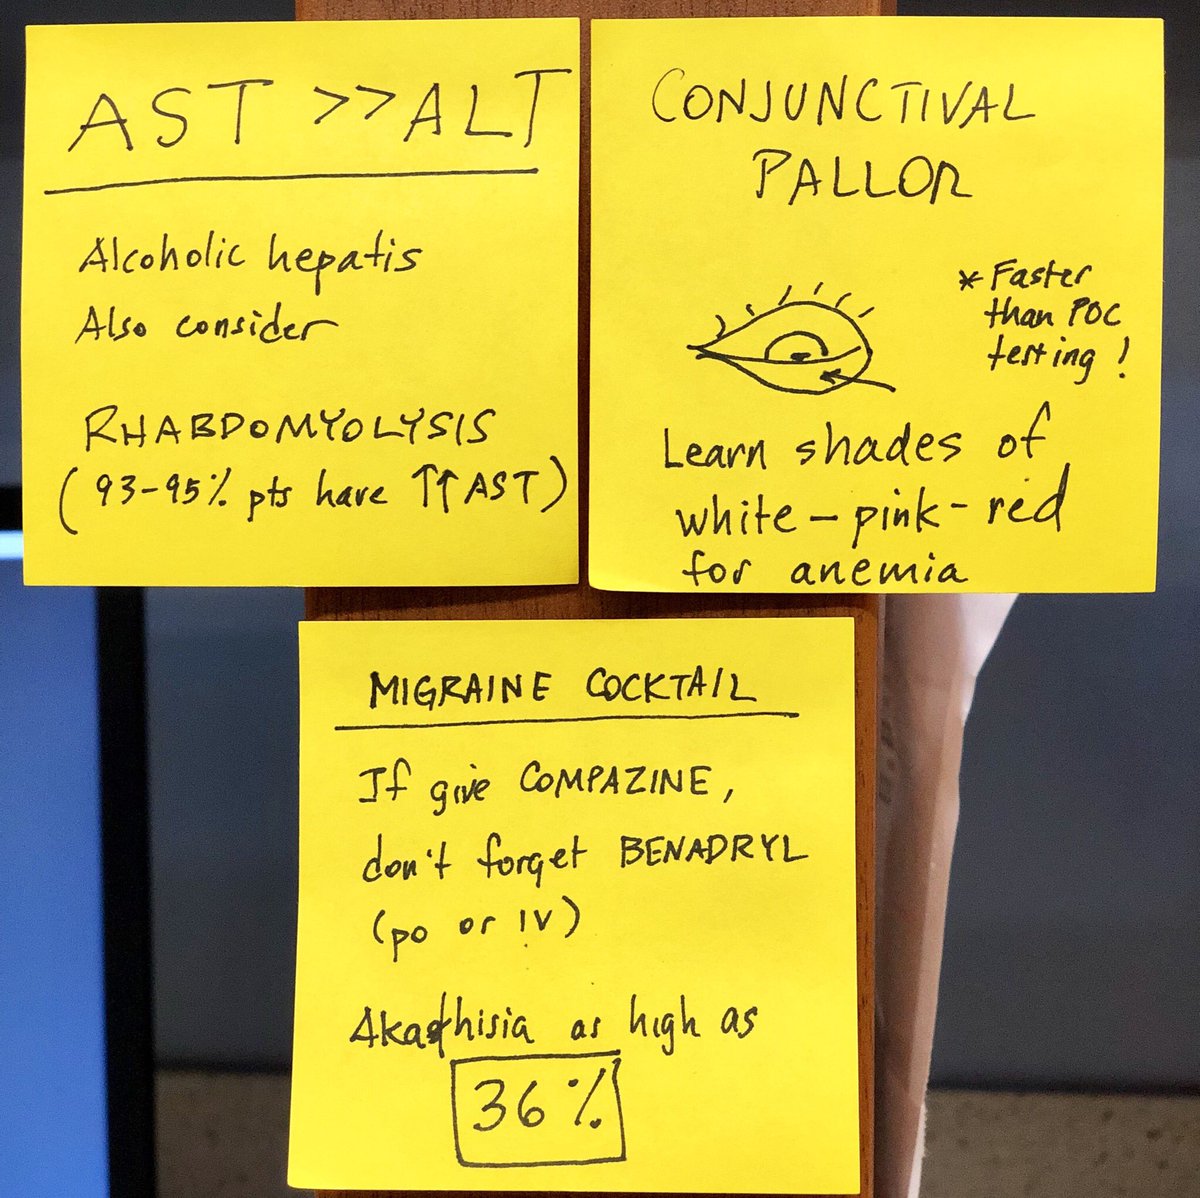 AST >> ALT
Alcoholic hepatis
Also consider
RHABDOMYOLYSIS
(93-95% pts have ↑↑ AST)
CONJUNCTIVAL
PALLOR
* Faster
than POC
testing!
Learn shades of
white - pink - red
for anemia
MIGRAINE COCKTAIL
If give COMPAZINE,
don't forget BENADRYL
(po or IV)
Akathisia as high as
36%